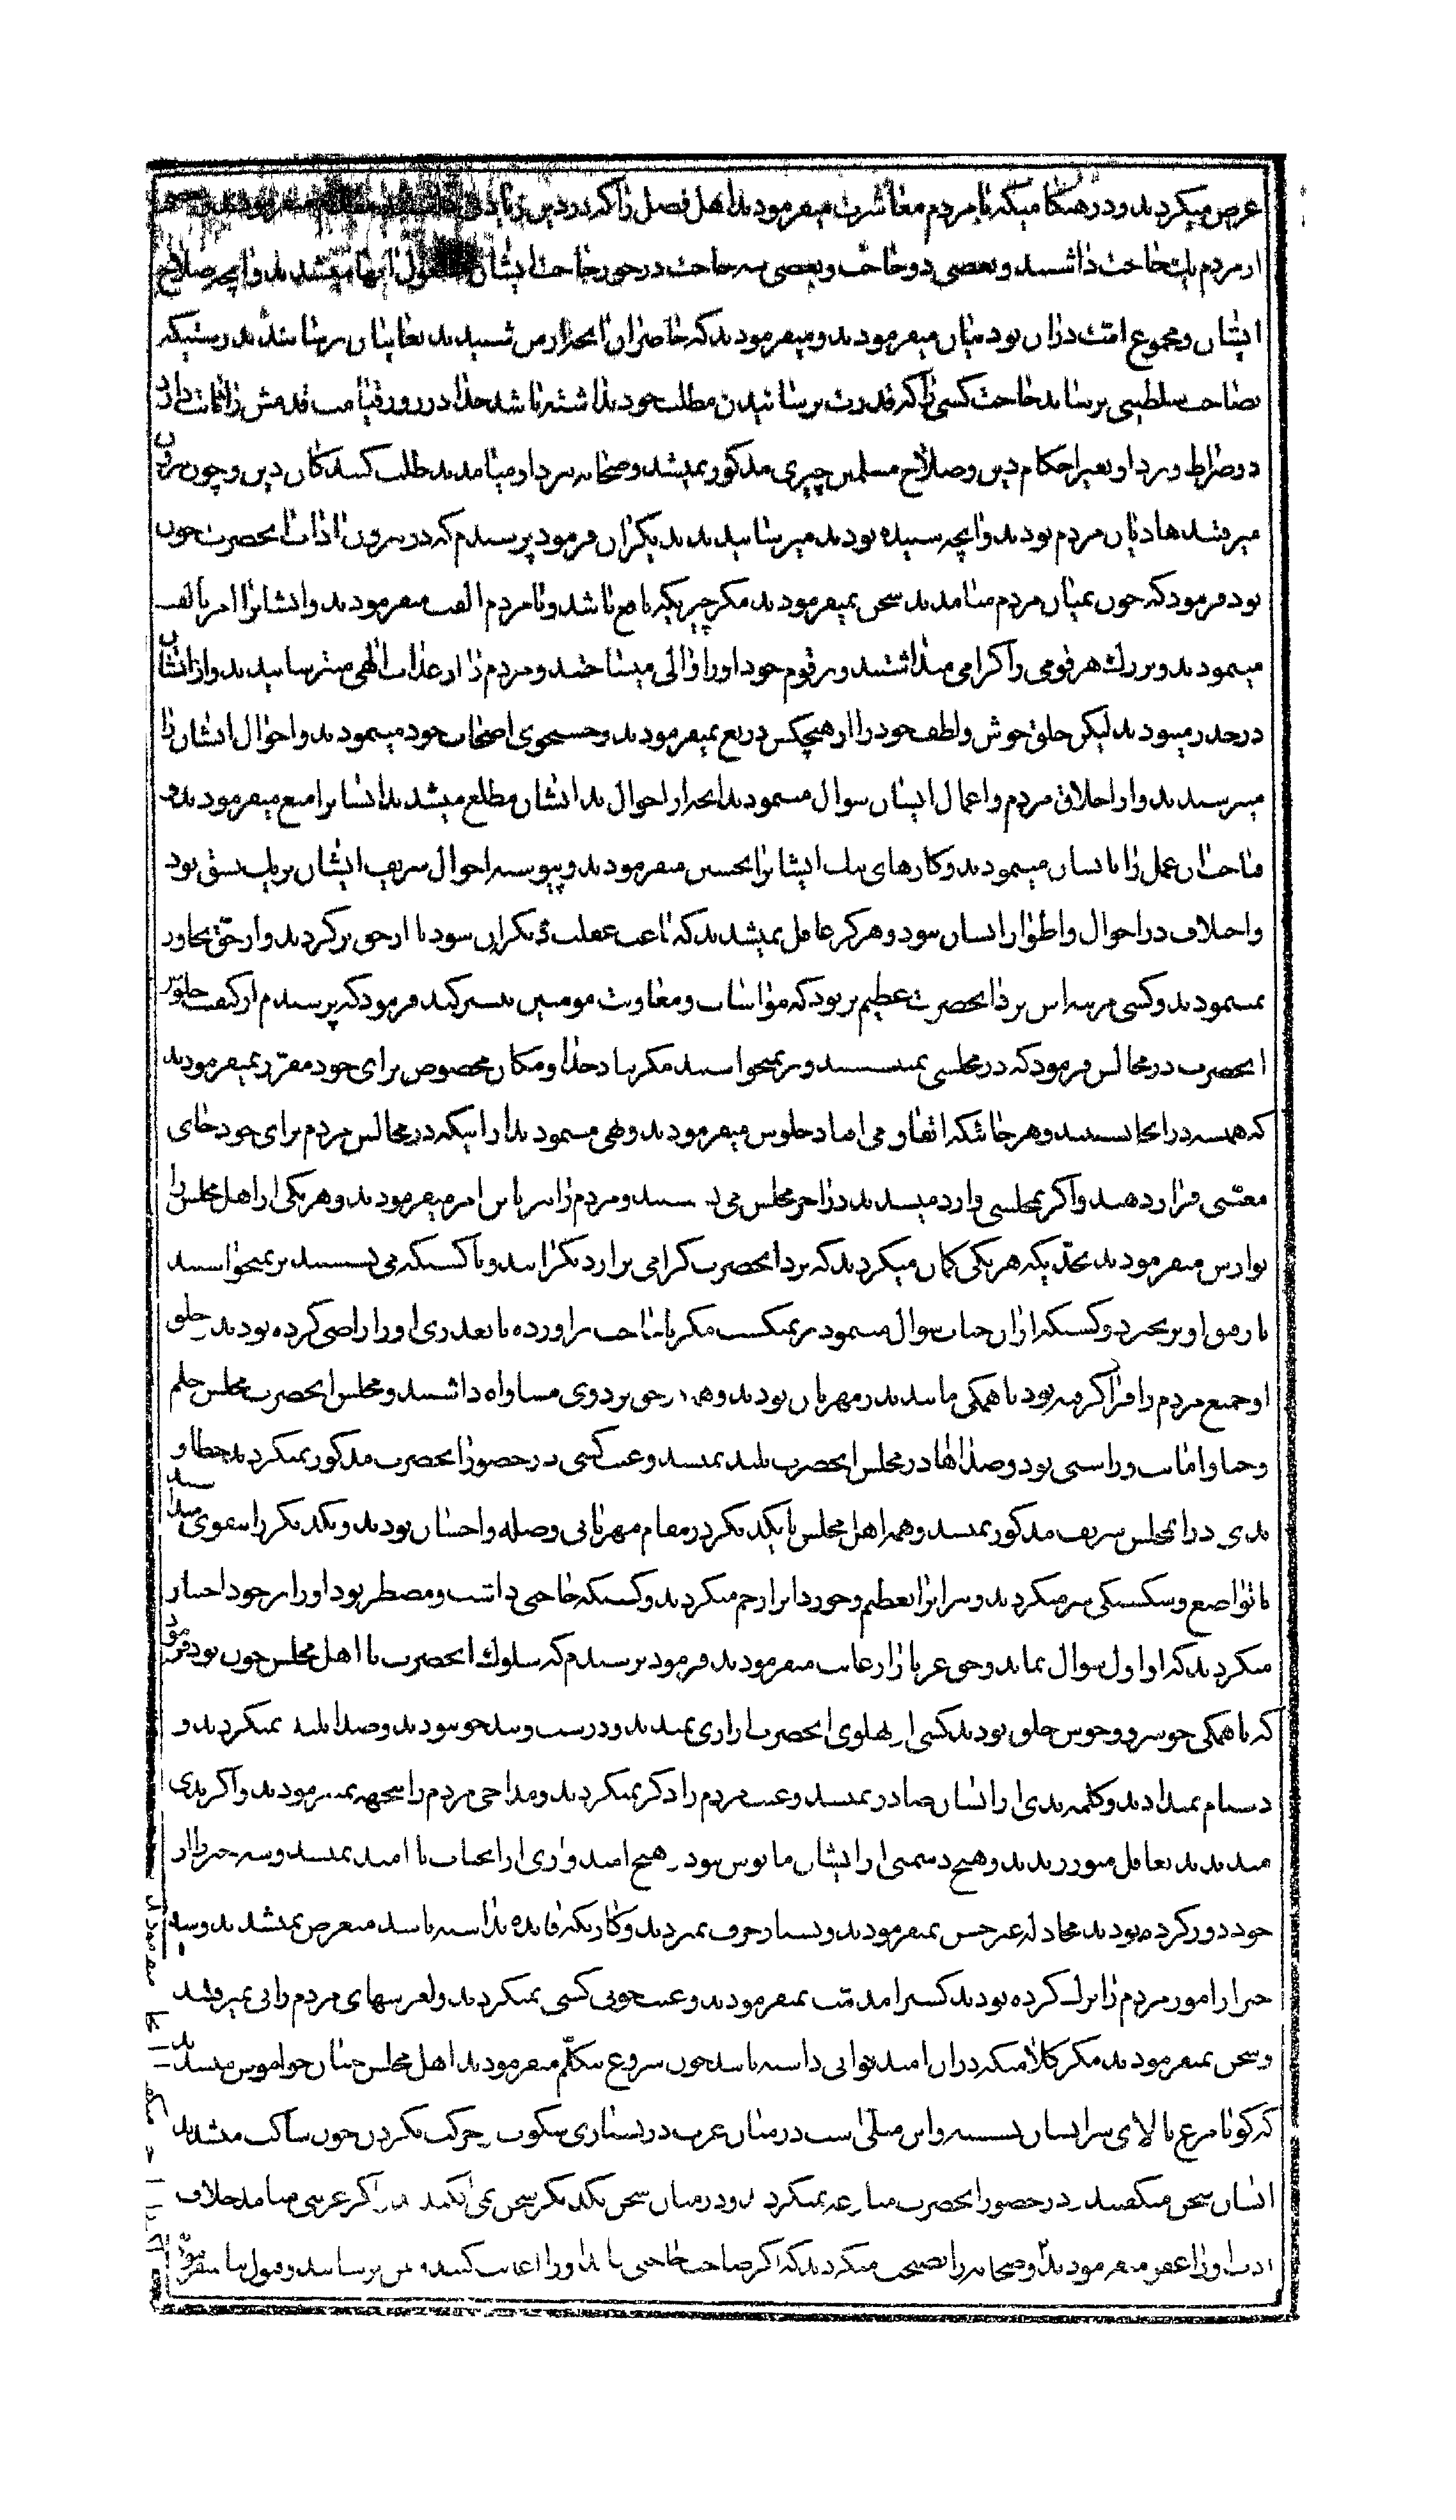 عرض میکردند و در هنگامیکه با مردم معاشرت میفرمودند اهل فضل را که در دین زیادتی
از مردم یک حاجت داشتند و بعضی دو حاجت و بعضی سه حاجت در خور حاجت ایشان مشغول آنها میشدند و آنچه صلاح
ایشان و مجموع امت در آن بود بیان میفرمودند و میفرمودند که حاضران آنچه از من شنیدند بغایبان برسانند بدرستیکه
بصاحب سلطنتی برساند حاجت کسی را که قدرت برسانیدن مطلب خود نداشته باشد خدا در روز قیامت قدمش را ثابت دارد
در صراط و نزد او بغیر احکام دین و صلاح مسلمین چیزی مذکور نمیشد و صحابه نزد او میامدند طلب کنندگان دین و چون بیرون
میرفتند هادیان مردم بودند و آنچه شنیده بودند میرسانیدند بدیگران فرمود پرسیدم که در بیرون آداب آنحضرت چون
بود فرمود که چون بمیان مردم میامدند سخن نمیفرمودند مگر چیزیکه نافع باشد و با مردم الفت میفرمودند و ایشانرا امر بالفت
مینمودند و بزرگ هر قومی را گرامی میداشتند و بر قوم خود او را والی میساختند و مردم را از عذاب الهی میترسانیدند و از ایشان
در حذر میبودند لیکن خلق خوش و لطف خود را از هیچکس دریغ نمیفرمودند و جستجوی اصحاب خود مینمودند و احوال ایشان را
میپرسیدند و از اخلاق مردم و اعمال ایشان سوال مینمودند آنچه از احوال بد ایشان مطلع میشدند ایشانرا منع میفرمودند و
قباحت آن عمل را بایشان مینمودند و کارهای نیک ایشانرا تحسین میفرمودند و پیوسته احوال شریف ایشان بر یک نسق بود
و اختلاف در احوال و اطوار ایشان نبود و هرگز غافل نمیشدند که باعث غفلت دیگران شود یا از حق برگردند و از حق تجاوز
نمینمودند و کسی مرتبه اش نزد آنحضرت عظیم تر بود که مواسات و معاونت مومنین بیشتر کند فرمود که پرسیدم از کیفیت جلوس
آنحضرت در مجالس فرمود که در مجلسی نمینشستند و بر نمیخواستند مگر با یاد خدا و مکان مخصوص برای خود مقرر نمیفرمودند
که همیشه در آنجا نشینند و هر جائیکه اتفاق می افتاد جلوس میفرمودند و نهی مینمودند از اینکه در مجالس مردم برای خود جای
معینی قرار دهند و اگر بمجلسی وارد میشدند در آخر مجلس می نشستند و مردم را نیز باین امر میفرمودند و هر یکی از اهل مجلس را
نوازش میفرمودند بحدیکه هر یکی گمان میکردند که نزد آنحضرت گرامی تر از دیگرانند و با کسیکه می نشستند بر نمیخواستند
تا رفیق او برخیزد و کسیکه از آن جناب سوال مینمود بر نمیگشت مگر با حاجت برآورده یا بعذری او را راضی کرده بودند خلق
او جمیع مردم را فرا گرفته بود با همگی مانند پدر مهربان بودند و همه در حق نزد وی مساوات داشتند و مجلس آنحضرت مجلس حلم
و حیا و امانت و راستی بود و صداها در مجلس آنحضرت بلند نمیشد و عیب کسی در حضور آنحضرت مذکور نمیکردند خطا و
بدی در آن مجلس شریف مذکور نمیشد و همه اهل مجلس با یکدیگر در مقام مهربانی و صله و احسان بودند و یکدیگر را بتقوی
با تواضع و شکستگی سر میکردند و پیرانرا تعظیم و خوردانرا رحم میکردند و کسیکه حاجتی داشت و مضطر بود او را بر خود اختیار
میکردند که او اول سوال نماید و حق غربا را رعایت میفرمودند فرمود پرسیدم که سلوک آنحضرت با اهل مجلس چون بود فرمود
که با همگی خوشرو و خوش خلق بودند کسی از پهلوی آنحضرت آزاری نمیدید و درشت و تند خو نبودند و صدا بلند نمیکردند و
دشنام نمیدادند و کلمه بدی از ایشان صادر نمیشد و عیب مردم را ذکر نمیکردند و مداحی مردم را بیجهه نمیفرمودند و اگر بدی
میدیدند تغافل میورزیدند و هیچ دشمنی از ایشان مایوس نبود و هیچ امیدواری از آنجناب نا امید نمیشد و سه چیز را از
خود دور کرده بودند مجادله عبث نمیفرمودند و بسیار حرف نمیزدند و کاریکه فایده نداشته باشد متعرض نمیشدند و سه
چیز از امور مردم را ترک کرده بودند کسیرا مذمت نمیفرمودند و عیب جویی کسی نمیکردند و لغزشهای مردم را پی نمیرفتند
و سخن نمیفرمودند مگر کلامیکه در آن امید ثوابی داشته باشد چون شروع بتکلم میفرمودند اهل مجلس چنان خاموش میشدند
که گویا مرغ بالای سر ایشان نشسته و این مثلی است در میان عرب در بسیاری سکوت و حرکت نکردن چون ساکت میشدند
ایشان سخن میگفتند و در حضور آنحضرت منازعه نمیکردند و در میان سخن یکدیگر سخن نمی افکندند و اگر غریبی میامد خلاف
ادب او را عفو میفرمودند و صحابه را نصیحت میکردند که اگر صاحب حاجتی بیابد او را اعانت کنید و بمن برسانید و قبول ثنا نمیفرمودند